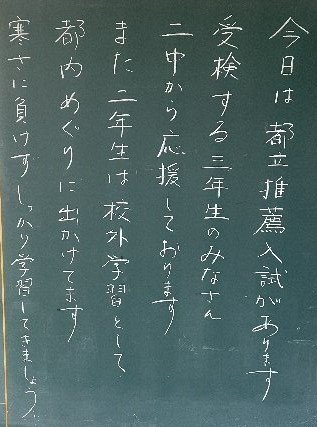 今日は都立推薦入試があります
受検する三年生のみなさん
二中から応援しております
また二年生は校外学習として
都内めぐりに出かけてます
寒さに負けずしっかり学習してきましょう。